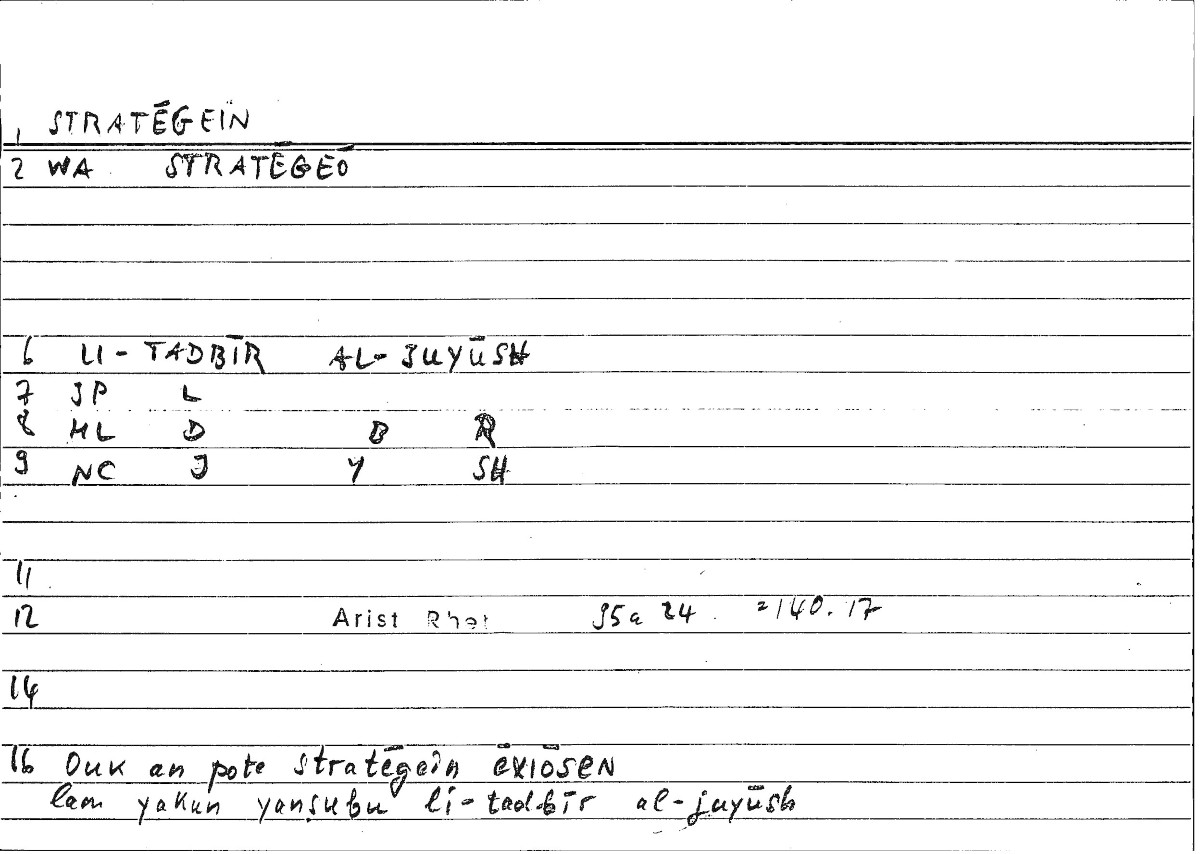 1 STRATĒGEIN
2 WA STRATĒGEŌ
6 LI-TADBĪR AL-JUYŪSH
7 JP L
8 ML D B R
9 NC J Y SH
11
12 Arist Rhet 95a 24 =140.17
14
16 Ouk an pote stratēgein ēxiōsen
lam yakun yanṣubu li-tadbīr al-juyūsh